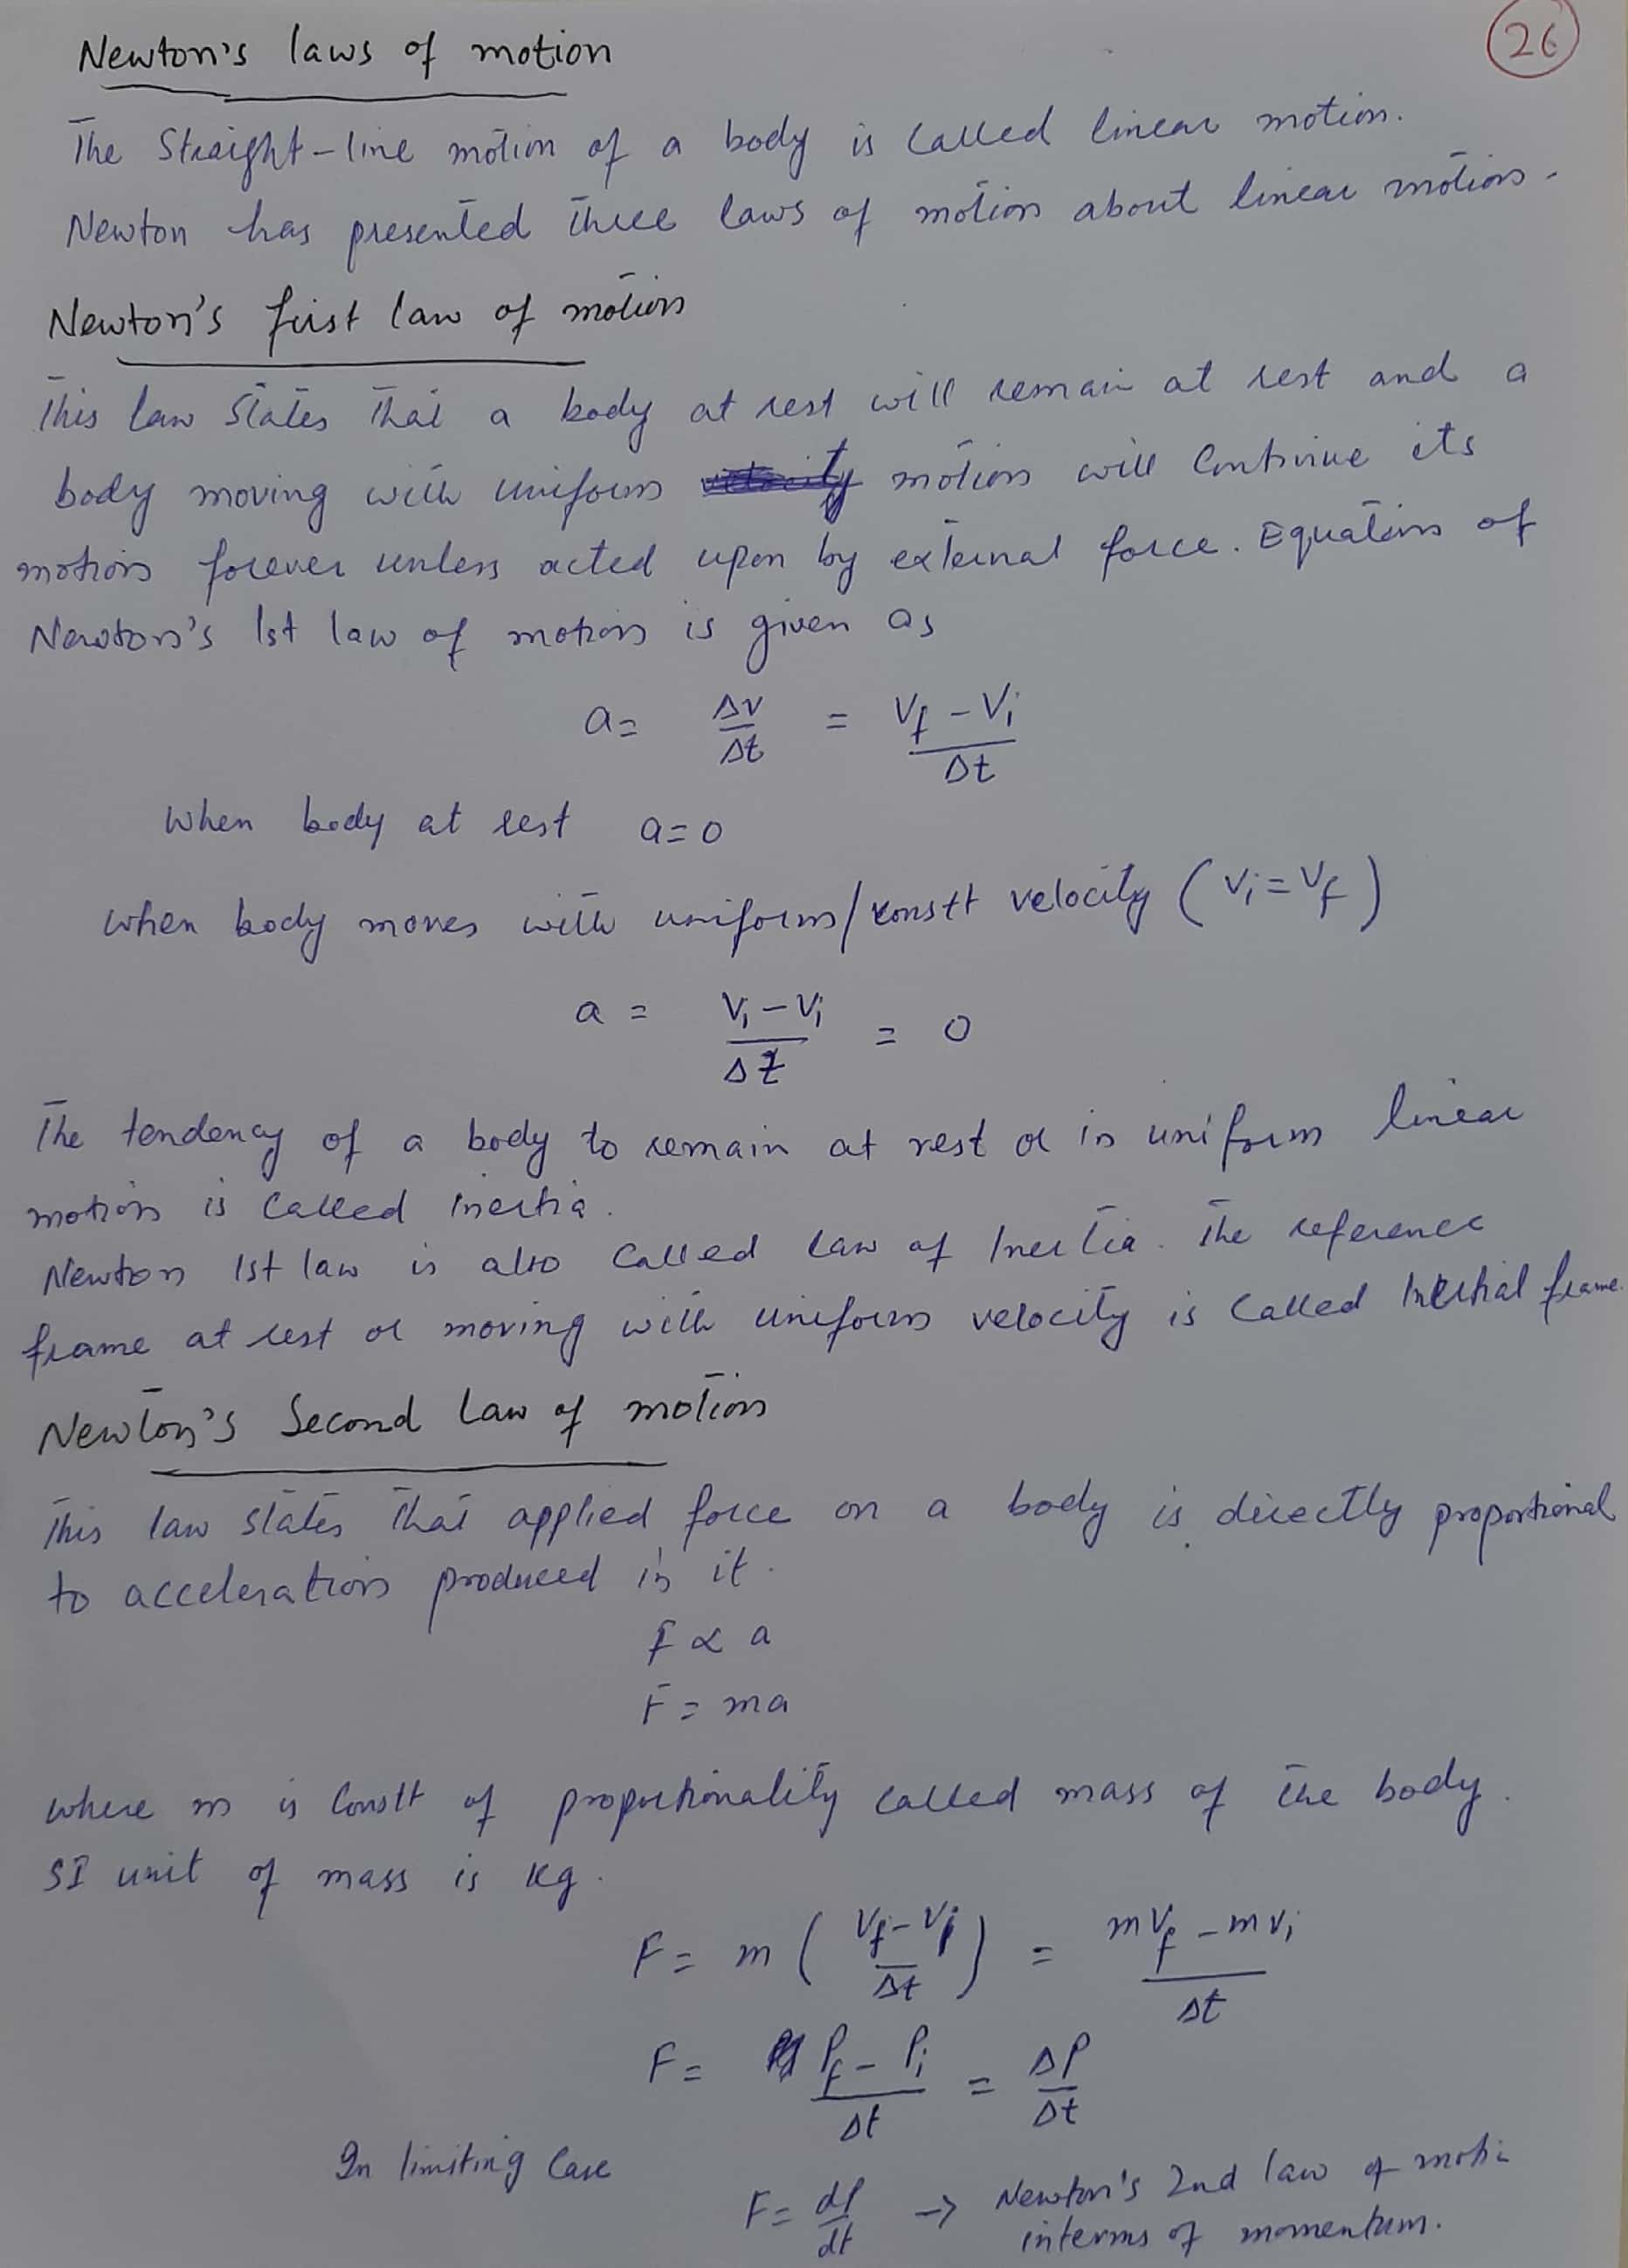 26
Newton's laws of motion
The Straight-line motion of a body is called linear motion.
Newton has presented three laws of motion about linear motion.
Newton's first law of motion
This law states that a body at rest will remain at rest and a
body moving with uniform motion will continue its
motion forever unless acted upon by external force. Equation of
Newton's 1st law of motion is given as
a = Δv/Δt = (Vf - Vi)/Δt
When body at rest a=0
When body moves with uniform/constt velocity (Vi = Vf)
a = (Vi - Vi)/Δt = 0
The tendency of a body to remain at rest or in uniform linear
motion is called inertia.
Newton 1st law is also called law of Inertia. The reference
frame at rest or moving with uniform velocity is called Inertial frame.
Newton's Second law of motion
This law states that applied force on a body is directly proportional
to acceleration produced in it.
F ∝ a
F = ma
where m is constt of proportionality called mass of the body.
SI unit of mass is kg.
F = m ((Vf - Vi)/Δt) = (mVf - mVi)/Δt
F = (Pf - Pi)/Δt = ΔP/Δt
In limiting Case
F = dP/dt → Newton's 2nd law of motion
interms of momentum.